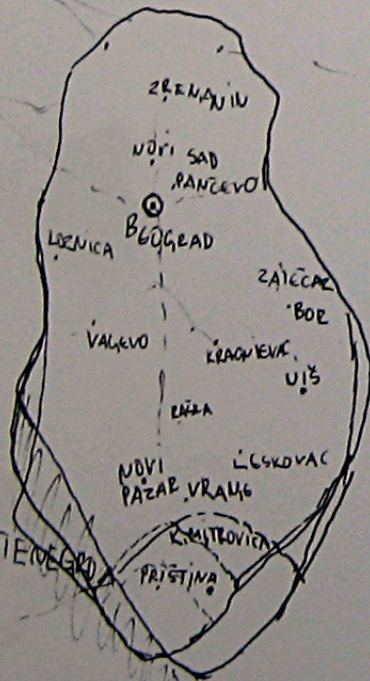 ZRENANIN
NOVI SAD
PANČEVO
BEOGRAD
LOZNICA
ZAJEČAR
BOR
VAGEVO
KRAGNIEVAC
UIŠ
RAŠKA
NOVI
PAZAR
LESKOVAC
VRANJE
K. MITROVICA
PRIŠTINA
TENEGRO